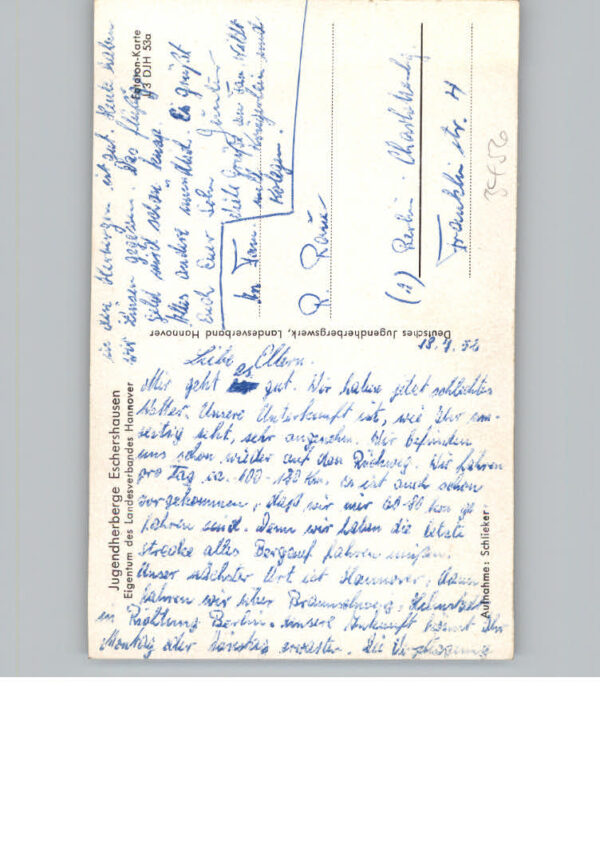 Jugendherberge Eschershausen
Eigentum des Landesverbandes Hannover
18.7.56
Liebe Eltern.
Mir geht es gut. Wir haben jetzt schlechtes
Wetter. Unsere Unterkunft ist, wie Ihr
seitig seht, sehr angenehm. Wir befinden
uns schon wieder auf dem Rückweg. Wir fahren
pro Tag ca. 100-120 km. Es ist auch schon
vorgekommen, daß wir nur 60-80 km ge
fahren sind. Denn wir haben die letzte
strecke alles Bergauf fahren müssen.
Unser nächster Ort ist Hannover, dann
fahren wir über Braunschweig, Helmstedt
in Richtung Berlin. unsere Ankunft könnt Ihr
Montag oder Dienstag erwarten. Die Verpflegung
in den Herbergen ist gut. Heute haben
wir Linsen gegessen. Das
Geld wird schon knapp.
Alles andere mündlich. Es grüßt
Euch Euer Sohn
Günter
viele Grüße an
und
Kolegen.
Aufnahme: Schlieker
Deutsches Jugendherbergswerk, Landesverband Hannover
Echtton-Karte
73 DJH 53a
An Fam
R. Rau
(1) Berlin - Charlottenbg.
Franklin str. 4